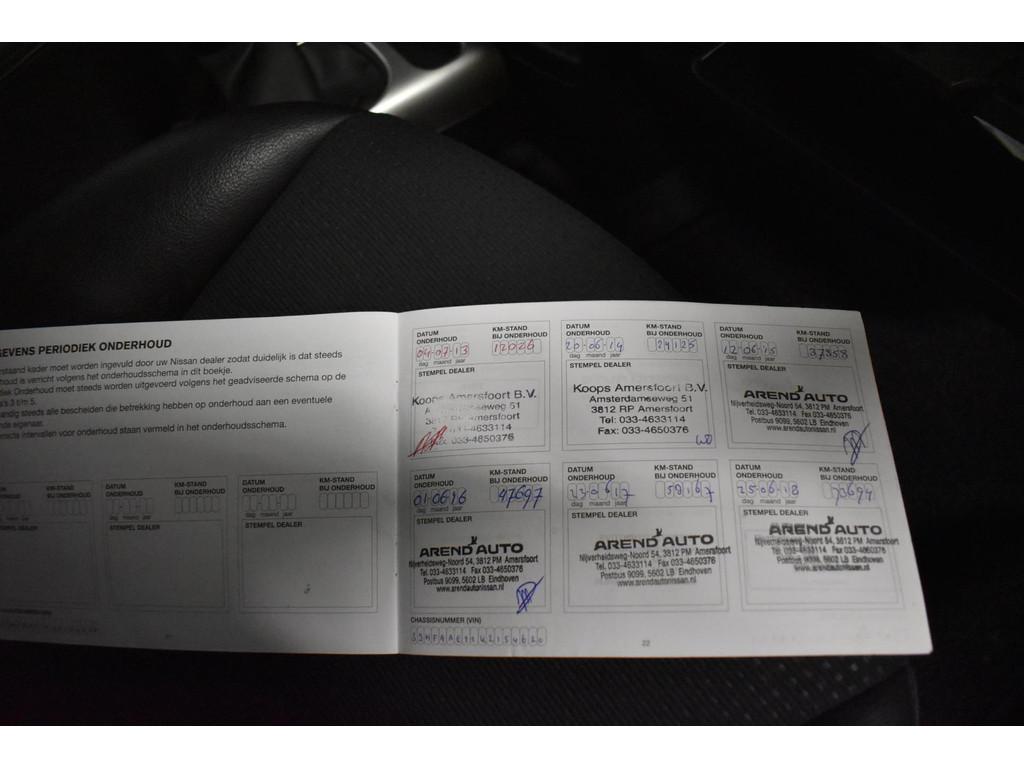 GEVENS PERIODIEK ONDERHOUD
rstaand kader moet worden ingevuld door uw Nissan dealer zodat duidelijk is dat steeds
houd is verricht volgens het onderhoudsschema in dit boekje.
diek Onderhoud moet steeds worden uitgevoerd volgens het geadviseerde schema op de
a's 3 t/m 5.
andig steeds alle bescheiden die betrekking hebben op onderhoud aan een eventuele
nde eigenaar.
ensche intervallen voor onderhoud staan vermeld in het onderhoudsschema.
KM-STAND
BIJ ONDERHOUD
STEMPEL DEALER
DATUM
ONDERHOUD
KM-STAND
BIJ ONDERHOUD
dag maand jaar
STEMPEL DEALER
DATUM
ONDERHOUD
KM-STAND
BIJ ONDERHOUD
dag maand jaar
STEMPEL DEALER
DATUM
ONDERHOUD
KM-STAND
BIJ ONDERHOUD
04-07-13 12026
dag maand jaar
STEMPEL DEALER
Koops Amersfoort B.V.
seweg 51
mersfoort
-4633114
033-4650376
DATUM
ONDERHOUD
KM-STAND
BIJ ONDERHOUD
20-06-14 24125
dag maand jaar
STEMPEL DEALER
Koops Amersfoort B.V.
Amsterdamseweg 51
3812 RP Amersfoort
Tel: 033-4633114
Fax: 033-4650376
DATUM
ONDERHOUD
KM-STAND
BIJ ONDERHOUD
12-06-15 37558
dag maand jaar
STEMPEL DEALER
AREND AUTO
Nijverheidsweg-Noord 54, 3812 PM Amersfoort
Tel. 033-4633114 Fax 033-4650376
Postbus 9099, 5602 LB Eindhoven
www.arendautonissan.nl
DATUM
ONDERHOUD
KM-STAND
BIJ ONDERHOUD
01-06-16 47697
dag maand jaar
STEMPEL DEALER
AREND AUTO
Nijverheidsweg-Noord 54, 3812 PM Amersfoort
Tel. 033-4633114 Fax 033-4650376
Postbus 9099, 5602 LB Eindhoven
www.arendautonissan.nl
DATUM
ONDERHOUD
KM-STAND
BIJ ONDERHOUD
23-06-17 59167
dag maand jaar
STEMPEL DEALER
AREND AUTO
Nijverheidsweg-Noord 54, 3812 PM Amersfoort
Tel. 033-4633114 Fax 033-4650376
Postbus 9099, 5602 LB Eindhoven
www.arendautonissan.nl
DATUM
ONDERHOUD
KM-STAND
BIJ ONDERHOUD
25-06-18 70694
dag maand jaar
STEMPEL DEALER
AREND AUTO
Nijverheidsweg-Noord 54, 3812 PM Amersfoort
Tel. 033-4633114 Fax 033-4650376
Postbus 9099, 5602 LB Eindhoven
www.arendautonissan.nl
CHASSISNUMMER (VIN)
22